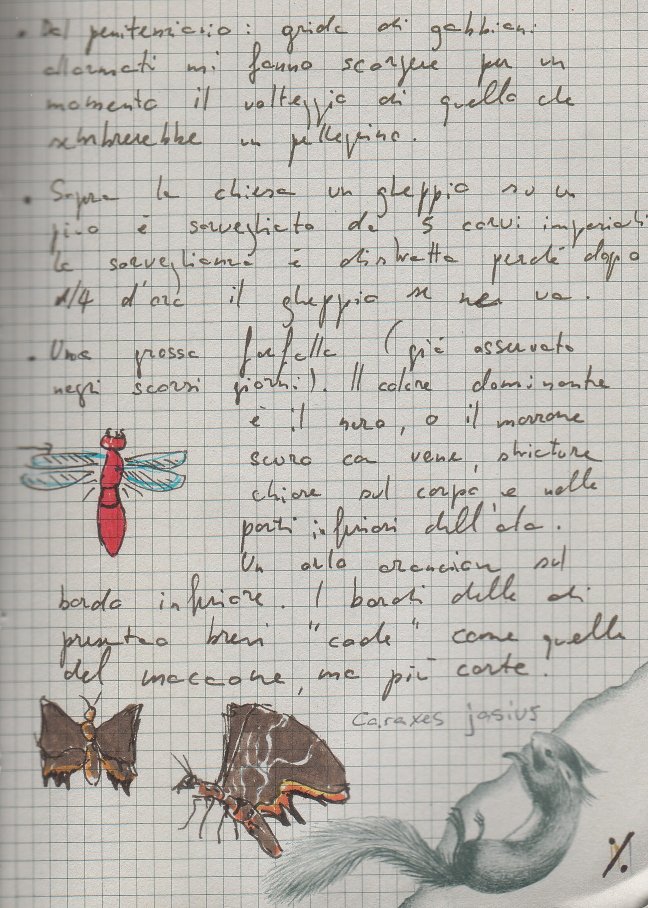 • Dal penitenziario: grida di gabbiani
allarmati mi fanno scorgere per un
momento il volteggio di quello che
sembrerebbe un pellegrino.
• Sopra la chiesa un gheppio su un
pino è sorvegliato da 5 corvi imperiali
la sorveglianza è distratta perché dopo
1/4 d'ora il gheppio se ne va.
• Una grossa farfalla (già osservata
negli scorsi giorni). Il colore dominante
è il nero, o il marrone
scuro con vene, striature
chiare sul corpo e nelle
parti inferiori dell'ala.
Un orlo arancione sul
bordo inferiore. I bordi delle ali
presentano brevi "code" come quelle
del macaone, ma più corte.
Caraxes jasius
%.